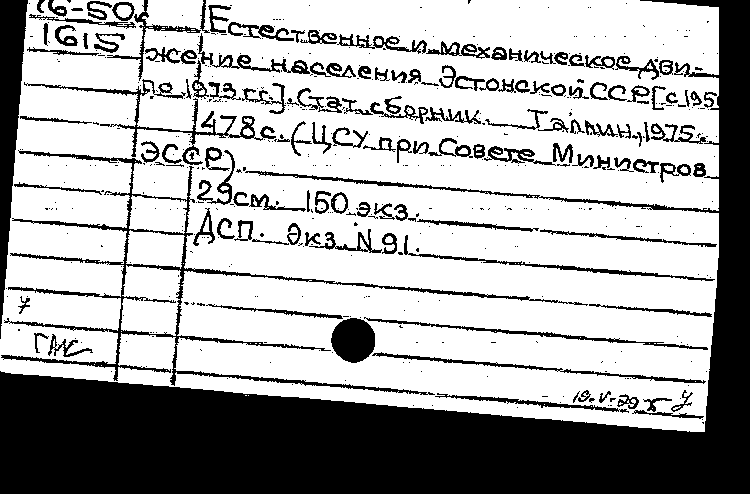 16-50с
1615
Естественное и механическое дви-
жение населения Эстонской ССР [с 195
по 1973 гг.]. Стат. сборник. Таллин, 1975.
478с. (ЦСУ при Совете Министров
ЭССР).
29см. 150 экз.
ДСП. Экз. N 91.